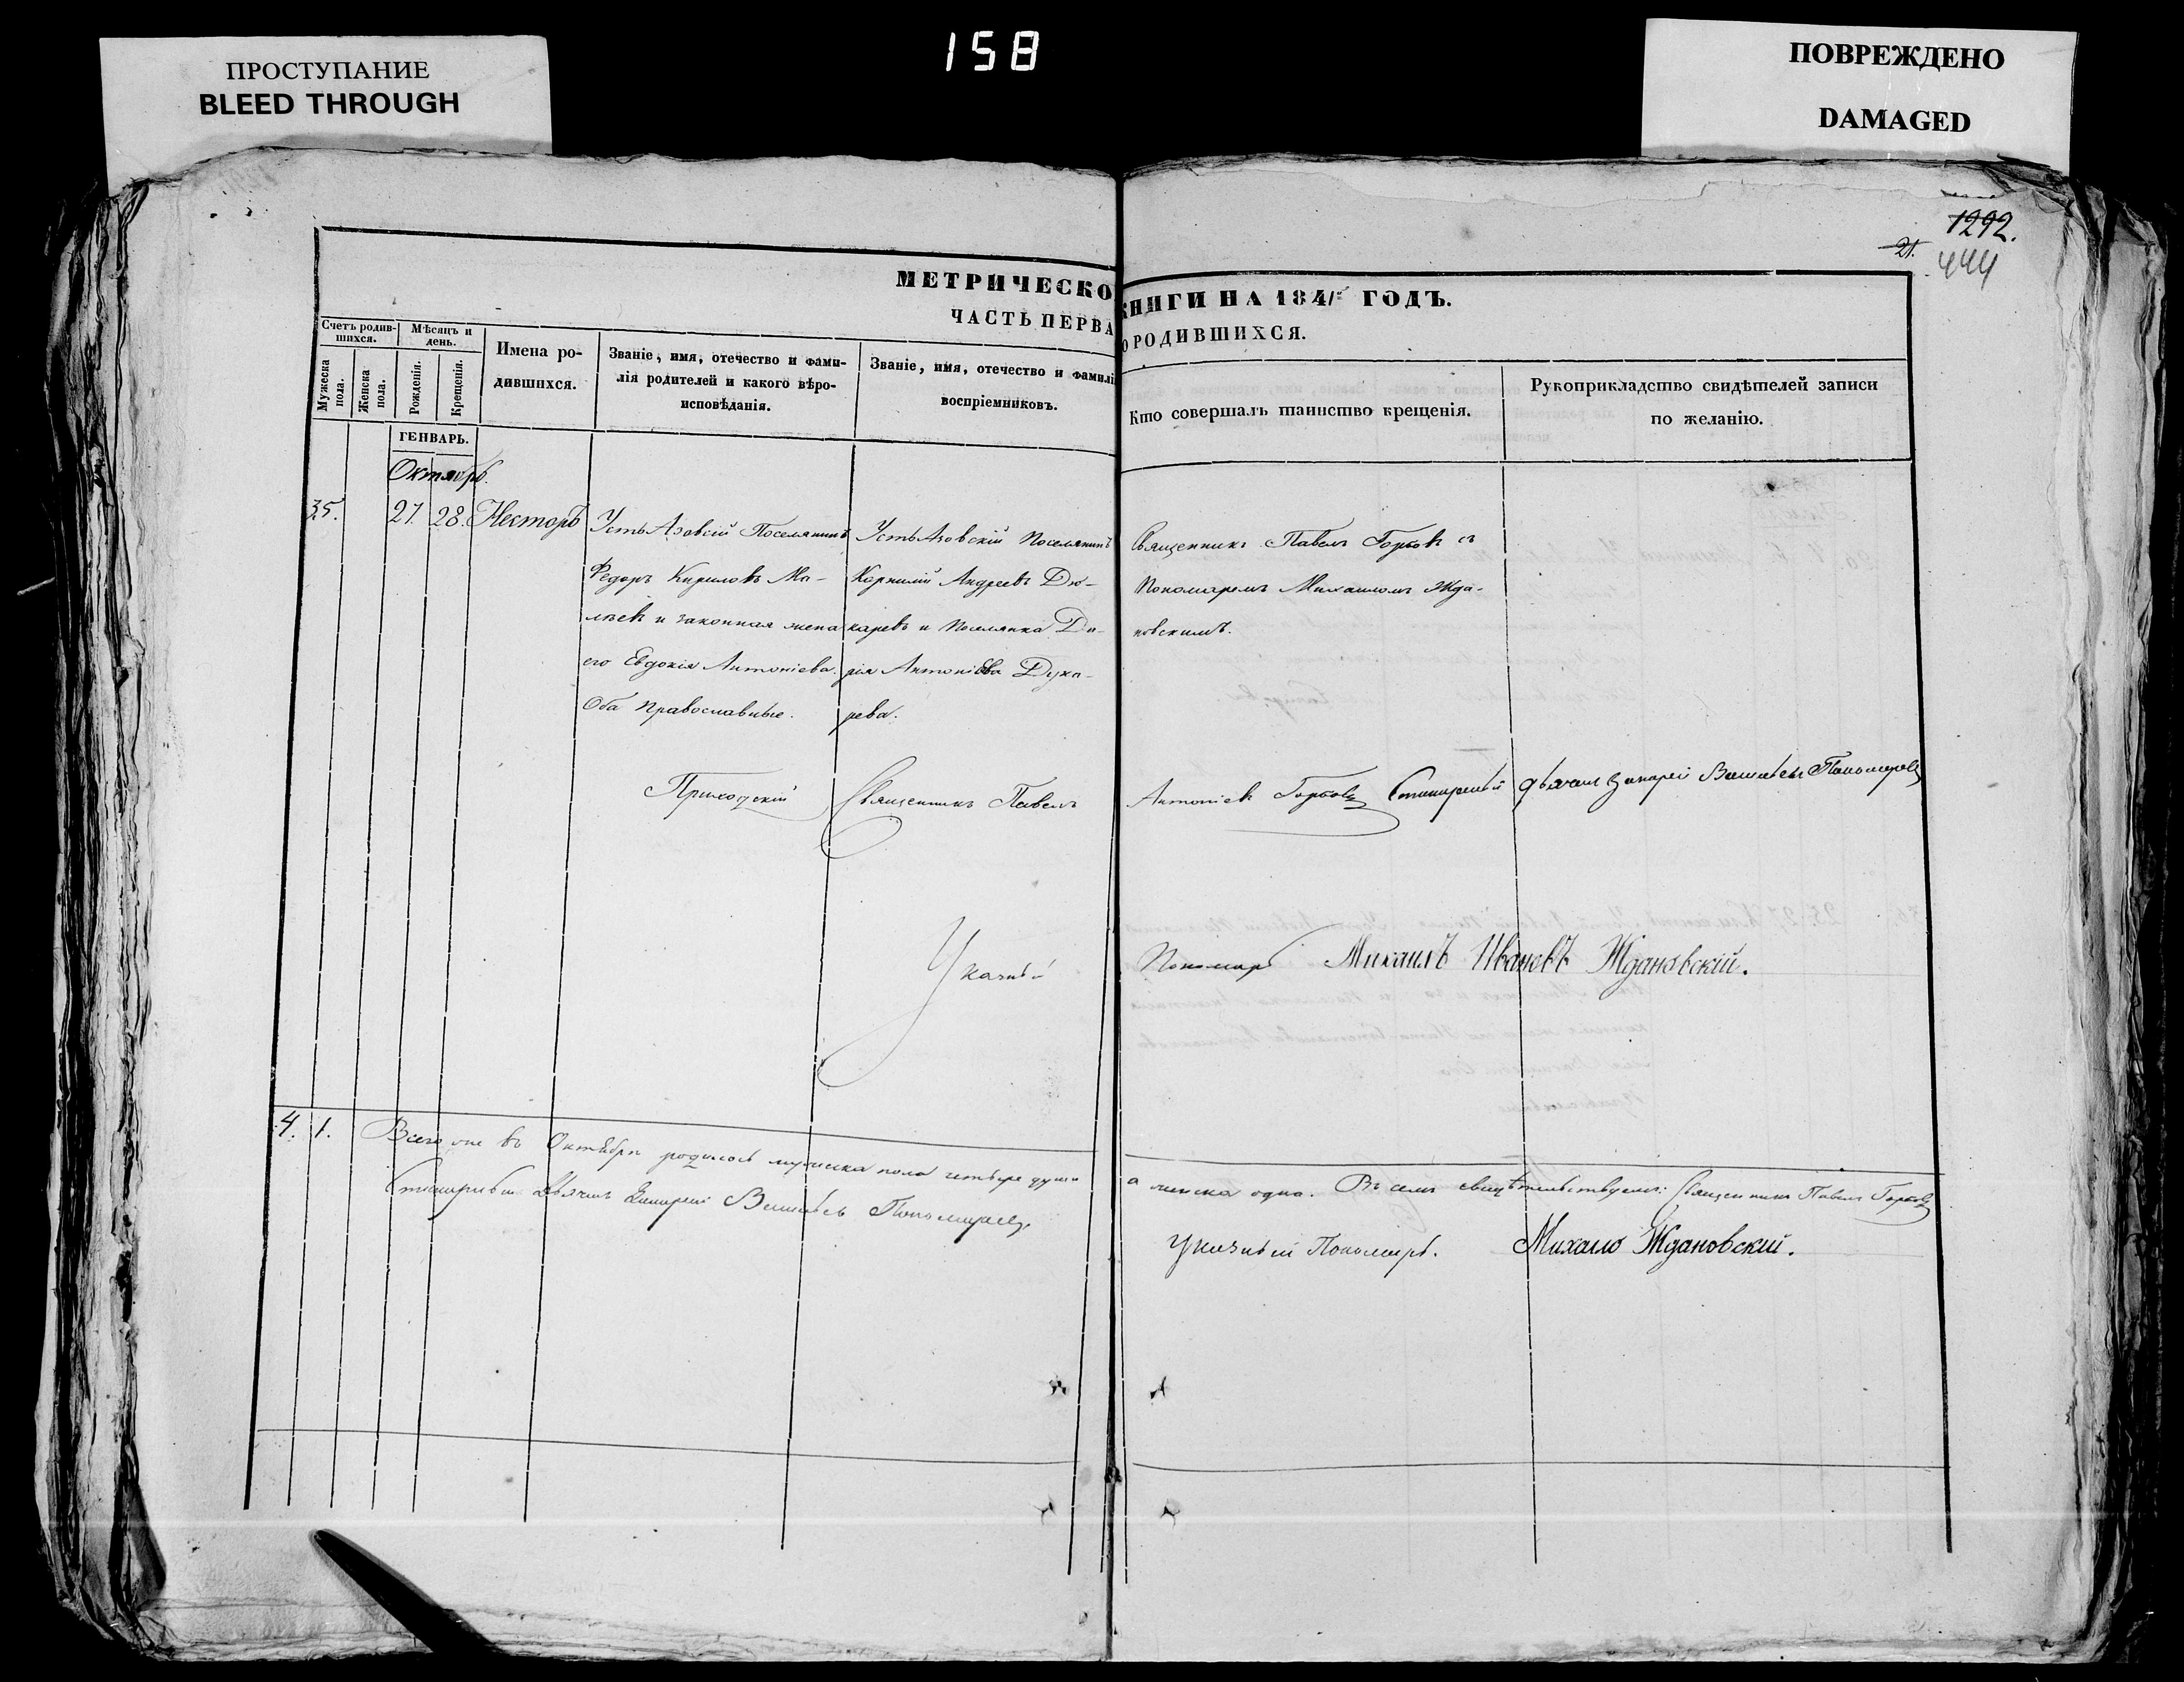 ПРОСТУПАНИЕ
BLEED THROUGH
158
ПОВРЕЖДЕНО
DAMAGED
1292.
21.
444
МЕТРИЧЕСКО КНИГИ НА 1841 ГОДЪ.
ЧАСТЬ ПЕРВА О РОДИВШИХСЯ.
Счетъ родив-
шихся.
Мужеска
пола.
Женска
пола.
Мѣсяцъ и
день.
Рожденія.
Крещенія.
Имена ро-
дившихся.
Званіе, имя, отечество и фами-
лія родителей и какого вѣро-
исповѣданія.
Званіе, имя, отечество и фамилі
воспріемниковъ.
Кто совершалъ таинство крещенія.
Рукоприкладство свидѣтелей записи
по желанію.
ГЕНВАРЬ.
Октябрь.
35.
27.
28.
Несторъ
Усть Азовскій Поселянинъ
Федоръ Кириловъ Ма-
лѣевъ и законная жена
его Евдокія Антоніева.
Оба Православные.
Усть Азовскій Поселянинъ
Корнилій Андреевъ Ду-
каревъ и Поселянка Да-
рія Антоніева Дука-
рева.
Священникъ Павелъ Горбовъ съ
Пономаремъ Михаиломъ Жда-
новскимъ.
Приходскій Священникъ Павелъ Антоніевъ Горбовъ
дьячокъ Захарій Пономаревъ
Указный Пономарь Михаилъ Ивановъ Ждановскій.
4. 1. Всего въ Октябрѣ родилось мужеска пола четыре души а женска одна. Въ семъ свидѣтельствуемъ: Священникъ Павелъ Горбовъ
дьячокъ Захарій Пономаревъ
Указный Пономарь. Михаило Ждановскій.